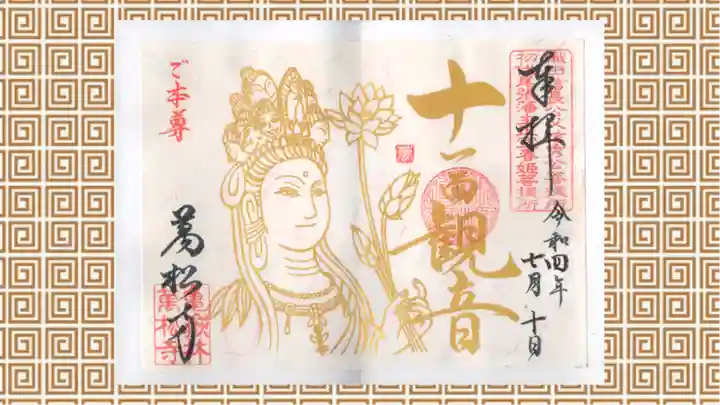 奉拝
令和四年
七月十日
十一面観音
ご本尊
萬松寺
龜嶽林
萬松寺